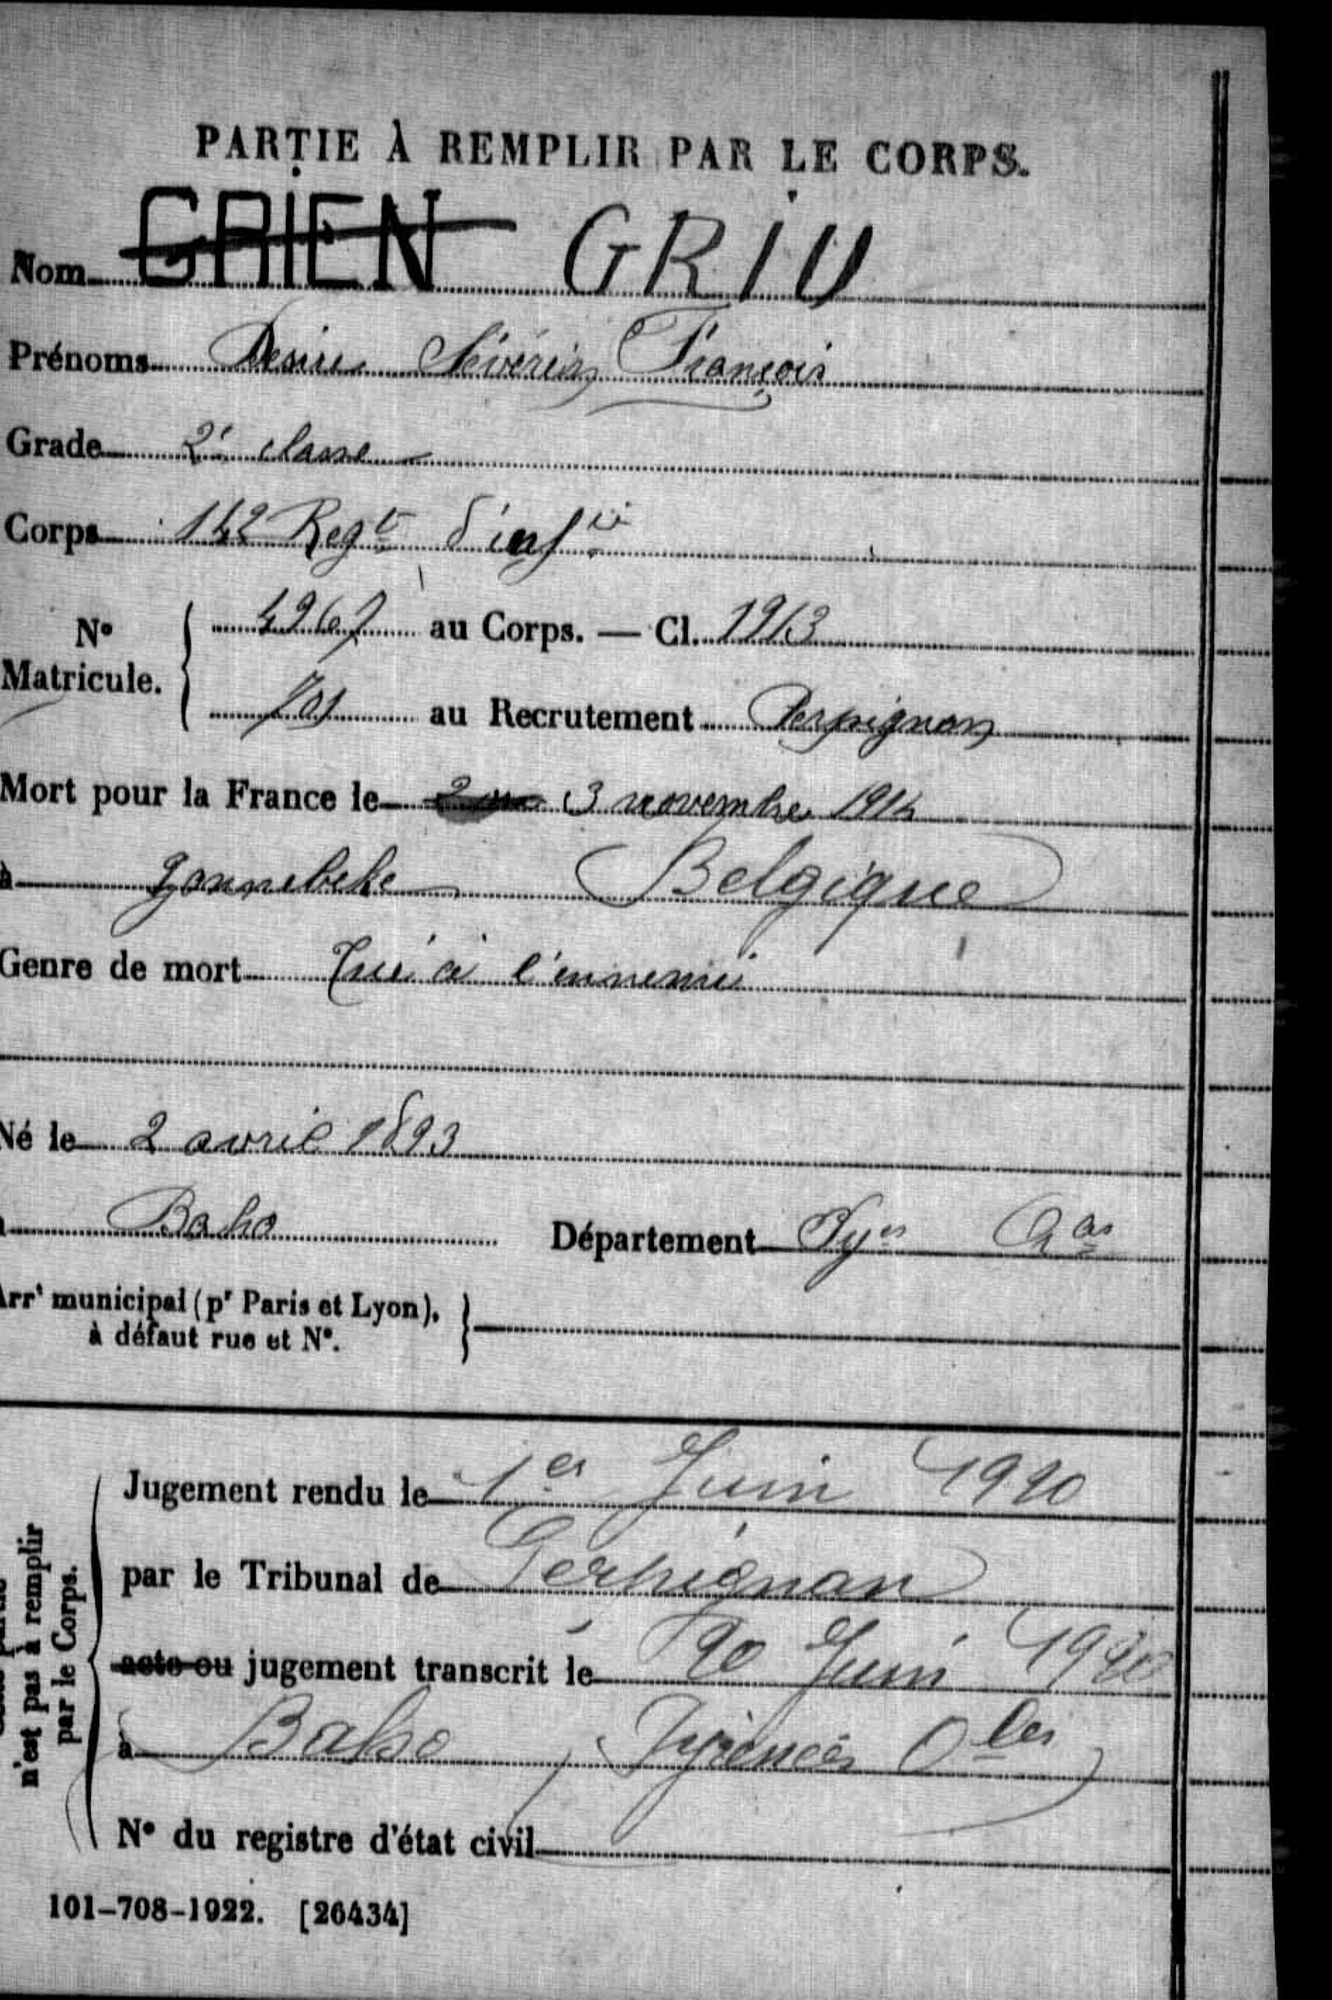 PARTIE À REMPLIR PAR LE CORPS.
Nom GRIEN GRIU
Prénoms Desire Séverin François
Grade 2e classe
Corps 142 Regt d'infie
N° Matricule. { 4967 au Corps. — Cl. 1913
701 au Recrutement Perpignan
Mort pour la France le 3 novembre 1914
à Zonnebeke Belgique
Genre de mort Tué à l'ennemi
Né le 2 avril 1893
à Baho Département Pyes Oles
Arrt municipal (pr Paris et Lyon), }
à défaut rue et N°.
n'est pas à remplir
par le Corps.
Jugement rendu le 1er Juin 1920
par le Tribunal de Perpignan
acte ou jugement transcrit le 20 Juin 1920
à Baho, Pyrénées Oles
N° du registre d'état civil
101-708-1922. [26434]